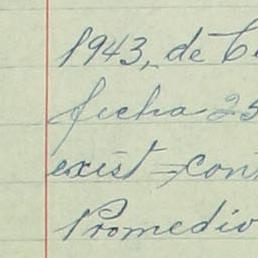 1943, de C
fecha 25
exist = con
Promedio